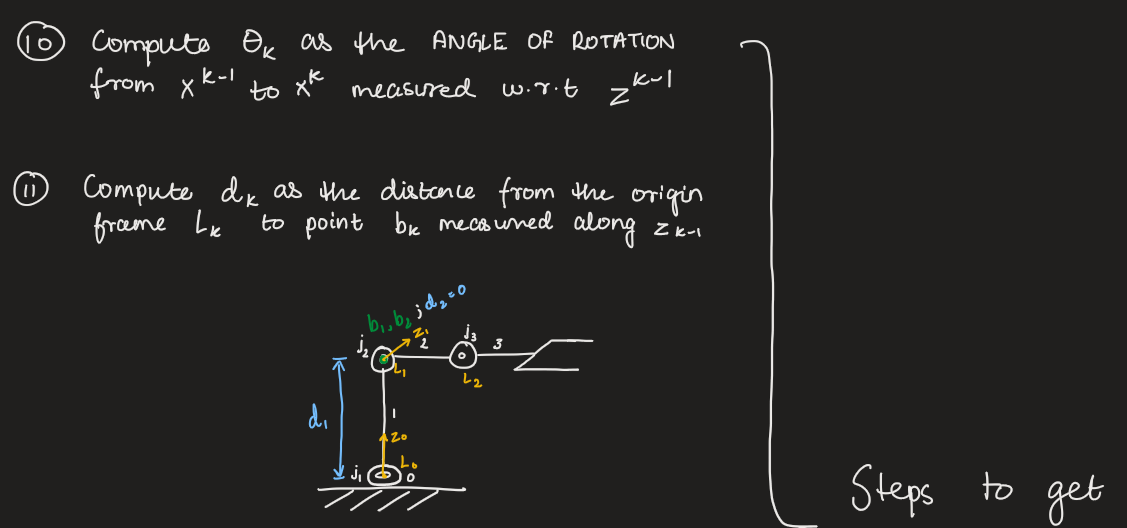 10 Compute θk as the ANGLE OF ROTATION
from x^k-1 to x^k measured w.r.t z^k-1
11 Compute dk as the distance from the origin
frame Lk to point bk measured along zk-1
b1, b2 ; d2=0
j2 z1 2 j3 3
L1 L2
d1 1
z0
j1 L0 0
Steps to get